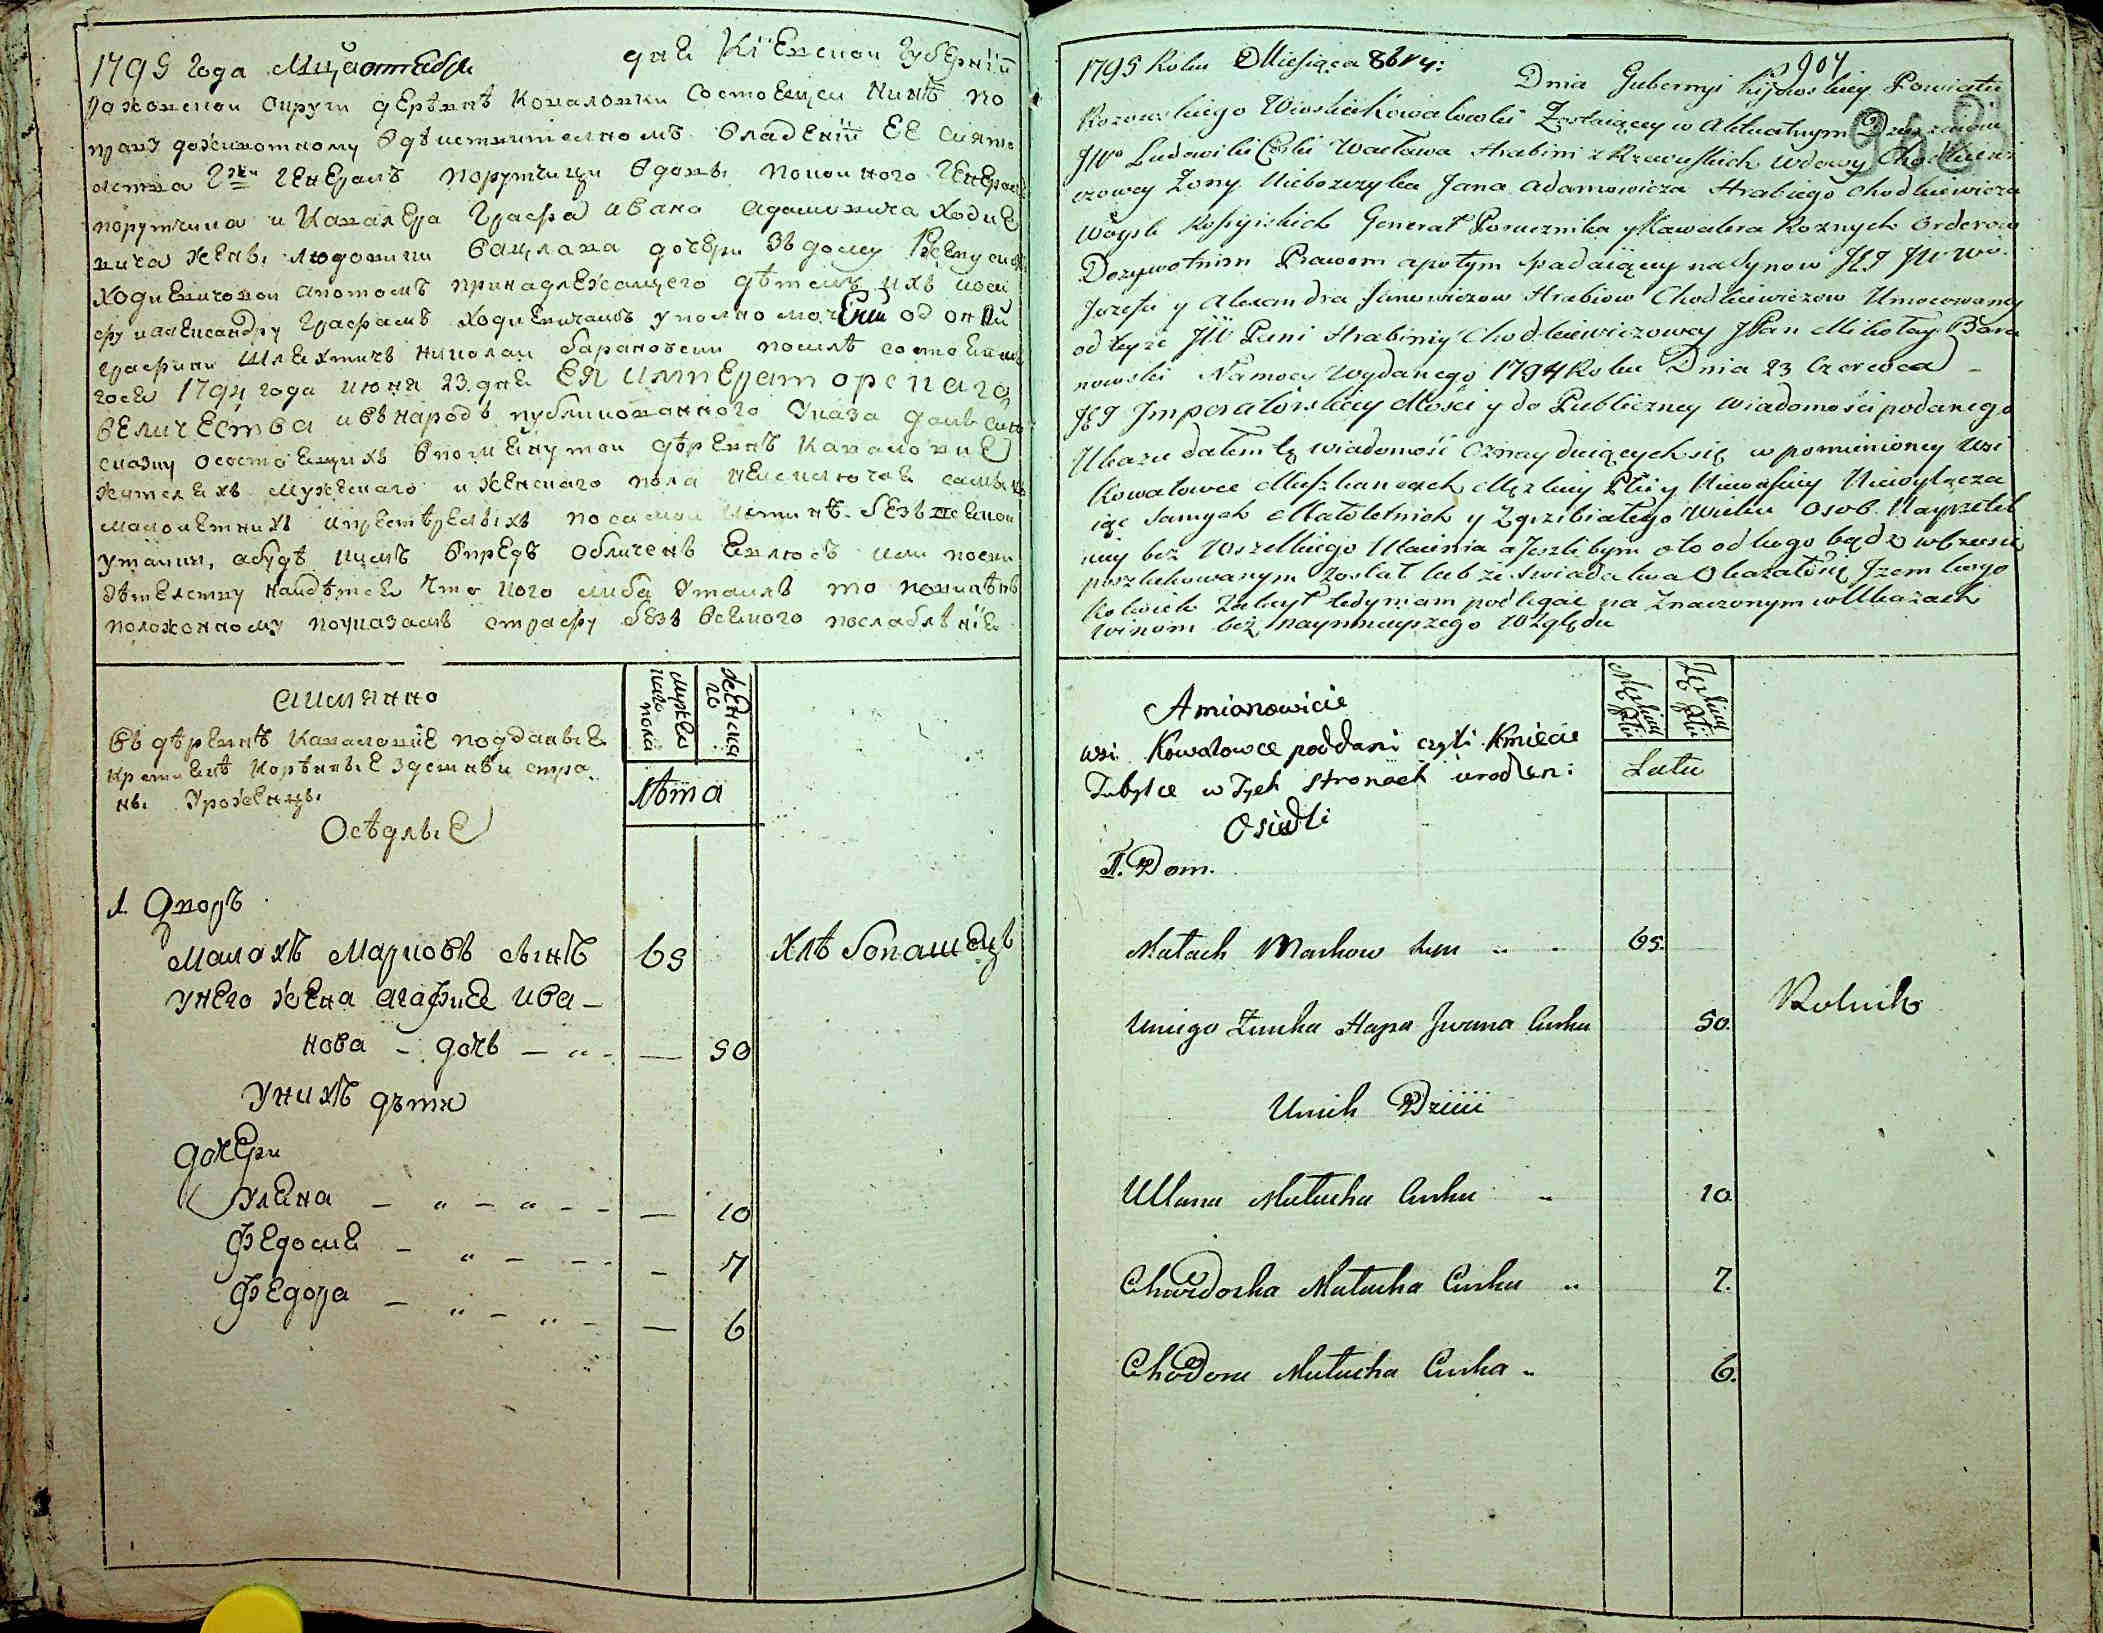 1795 года Мца октября дня Кіевской Губерніи
округи деревнѣ Ковалонки состоящей нинѣ по
праву доживотному вдѣиствителномъ владеніи ЕЕ сияте
лства Гжи Генералъ порутчици вдовы покоиного Генералъ
порутчика и Кавалера Графа Ивана Адамовича Ходке
вича жены Людовики Вацлава дочери зъ дому Ржевуских
Ходкевичовои апотомъ принадлежащего дѣтемъ ихъ иоси
фу иалександру Графамъ Ходкевичамъ уполномоченій од оной
Графини Шляхтичъ Николаи Барановски посилѣ состоявше
гося 1794 года июня 23. дня ЕЯ императорскаго
величества и въ народъ публикованного Указа далъ сию
сказку осостоящихъ впомянутои дѣревнѣ Каваловке
жителяхъ мужескаго и женскаго пола неисключая самыхъ
малолетнихъ ипрестѣрелыхъ посамои истинѣ безъ всякои
утаики, абудѣ кимъ впредъ обличенъ явлюсъ или по сви
дѣтелству наидѣтся что кого либа утаилъ то повинѣнъ
положонному поуказамъ страфу безъ всякого послаблѣнія
аимянно
въ дѣревнѣ Каваловке подданые
крестянѣ корѣнные здешнѣи стра
ны уроженцы
Осѣдлые
мужеска пола
женска го
лѣта
1 Дворъ
Малахъ Марковъ сынъ 65 хлѣбопашецъ
унего жена агафия ива-
нова - дочь - „ - — 50
Унихъ дѣти
дочери
Улѣна - „ - „ - - — 10
Федосия - „ - - - — 7
Федора - „ - „ - — 6
904
1795 Roku Miesiąca 8bry: Dnia Gubernyi Kijowskiey Powiatu
Rozowskiego Wioski Kowalowki Zostaiącey w Aktualnym Dzierżeniu
JW Ludowiki Corki Wacława Hrabini z Rzewuskich Wdowy Chodkiewi
czowey Zony Nieboszczyka Jana Adamowicza Hrabiego Chodkiewicza
Woysk Rossyiskich Generał Porucznika y Kawalera Roznych Orderow
Dozywotnim Prawem a potym spadaiącey na Synow JEJ JWW
Jozefa y Alexandra Janowiczow Hrabiow Chodkiewiczow Umocowany
od teyże JW Pani Hrabiniy Chodkiewiczowey JPan Mikołay Bara
nowski Namocy Wydanego 1794 Roku Dnia 23 Czerwca
JEJ Imperatorskiey Mości y do Publiczney Wiadomości podanego
Ukazu dałem tę wiadomość Oznayduiących się w pomienioney Wsi
Kowalowce Mieszkancach Męzkiey Płci y Niewiesciey Niewyłącza
iąc Samych Małoletnich y Zgrzibiałego Wieku Osob. Nayrzetel
niey bez Wszelkiego Utaienia a Jeżelibym o to od kogo bądź w
poszlakowanym został lub ze swiadectwa Okazałosię Jżem kogo
kolwiek Zakrył tedy mam podlegać na Znaczonym w Ukazach
Winom bez naymnieyszego Względu
Amianowicie
wsi Kowalowce poddani czyli Kmiecie
Tubylce w Tych Stronach urodzeni:
Osiedli
Męzkiey Płci
Żęskiey Płci
Lata
1. Dom.
Małach Markow Syn „ - 65.
Rolnik
Uniego Żonka Hapa Jwana Curka 50.
Unich Dzieci
Ullana Małacha Curka „ 10.
Chwedoska Małacha Curka „ 7.
Chodora Małacha Curka „ 6.